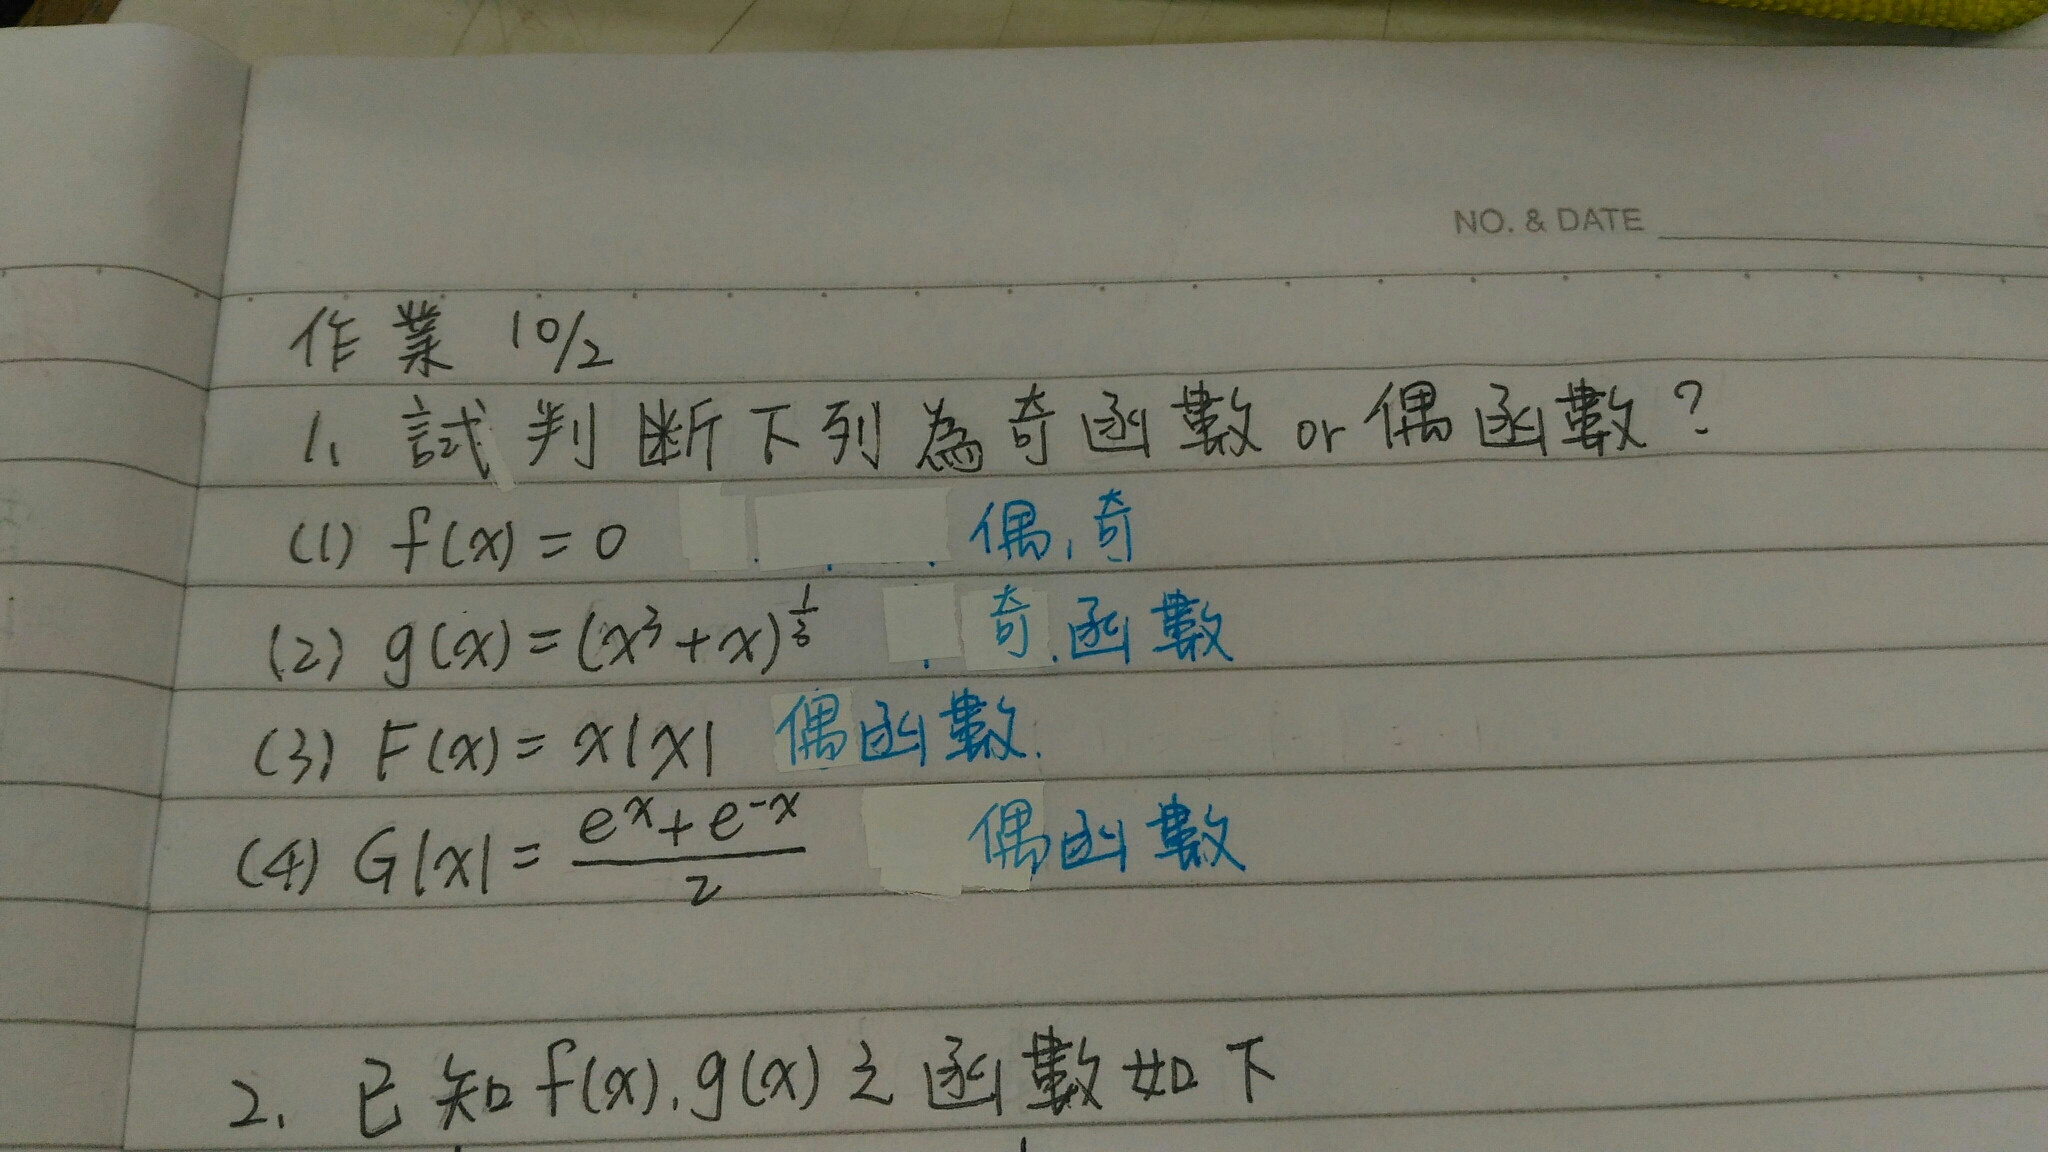 NO. & DATE
作業 10/2
1. 試判断下列為奇函數 or 偶函數?
(1) f(x) = 0 偶, 奇
(2) g(x) = (x³+x)^{1/3} 奇函數
(3) F(x) = x|x| 偶函數.
(4) G(x) = \frac{e^x+e^{-x}}{2} 偶函數
2. 已知 f(x), g(x) 之函數如下